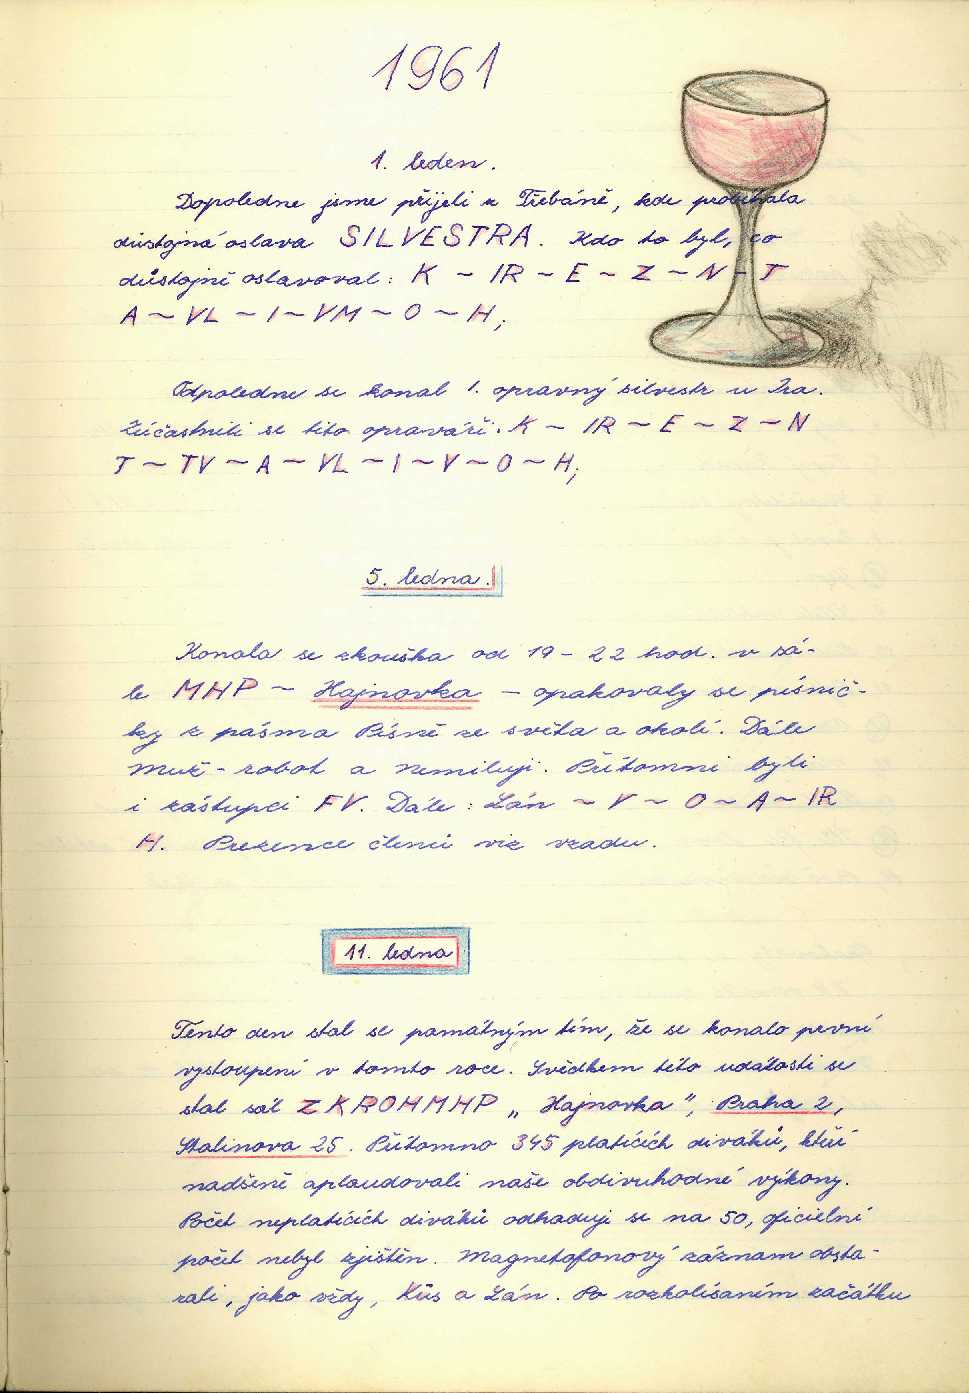 1961
1. leden.
Dopoledne jsme přijeli z Třebáně, kde probíhala
důstojná oslava SILVESTRA. Kdo to byl, co
důstojně oslavoval: K ~ IR ~ E ~ Z ~ N ~ T
A ~ VL ~ I ~ VM ~ O ~ H;
Odpoledne se konal 1. opravný silvestr u Ira.
Zúčastnili se tito opraváři: K ~ IR ~ E ~ Z ~ N
T ~ TV ~ A ~ VL ~ I ~ V ~ O ~ H;
5. ledna.
Konala se zkouška od 19 - 22 hod. v sá-
le MHP ~ Hajnovka - opakovaly se písnič-
ky z pásma Písně ze světa a okolí. Dále
Muž - robot a Nemiluji. Přítomni byli
i zástupci FV. Dále: Lán ~ V ~ O ~ A ~ IR
H. Prezence členů viz vzadu.
11. ledna
Tento den stal se památným tím, že se konalo první
vystoupení v tomto roce. Svědkem této události se
stal sál ZKROHMHP „Hajnovka", Praha 2,
Stalinova 25. Přítomno 345 platících diváků, kteří
nadšeně aplaudovali naše obdivuhodné výkony.
Počet neplatících diváků odhaduji se na 50, oficielní
počet nebyl zjištěn. Magnetofonový záznam obsta-
rali, jako vždy, Kůs a Lán. Po rozkolísaném začátku